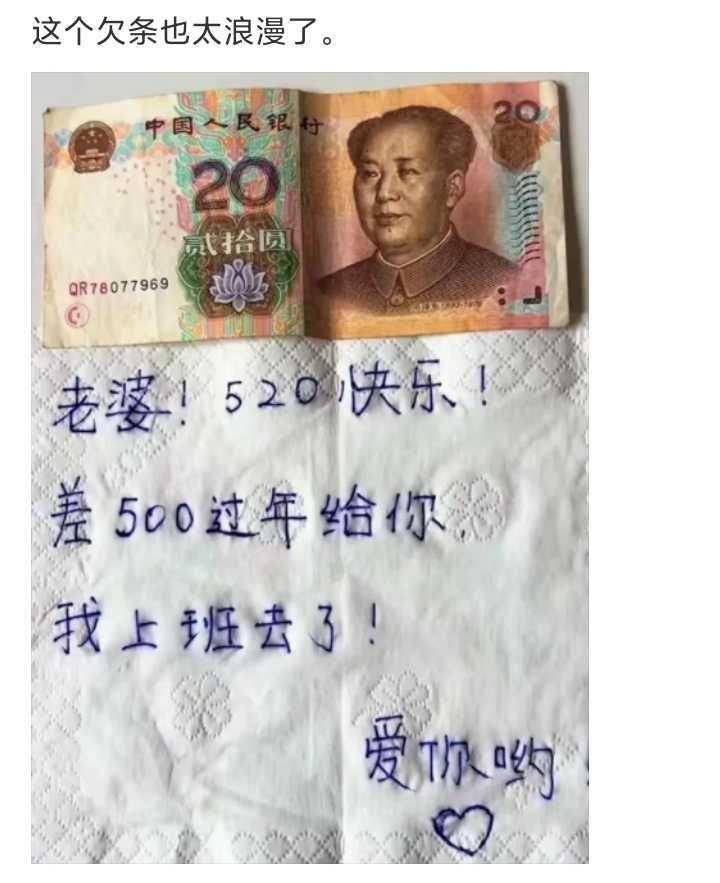 这个欠条也太浪漫了。
中国人民银行
20
20
贰拾圆
QR78077969
老婆！520快乐！
差500过年给你
我上班去了！
爱你哟